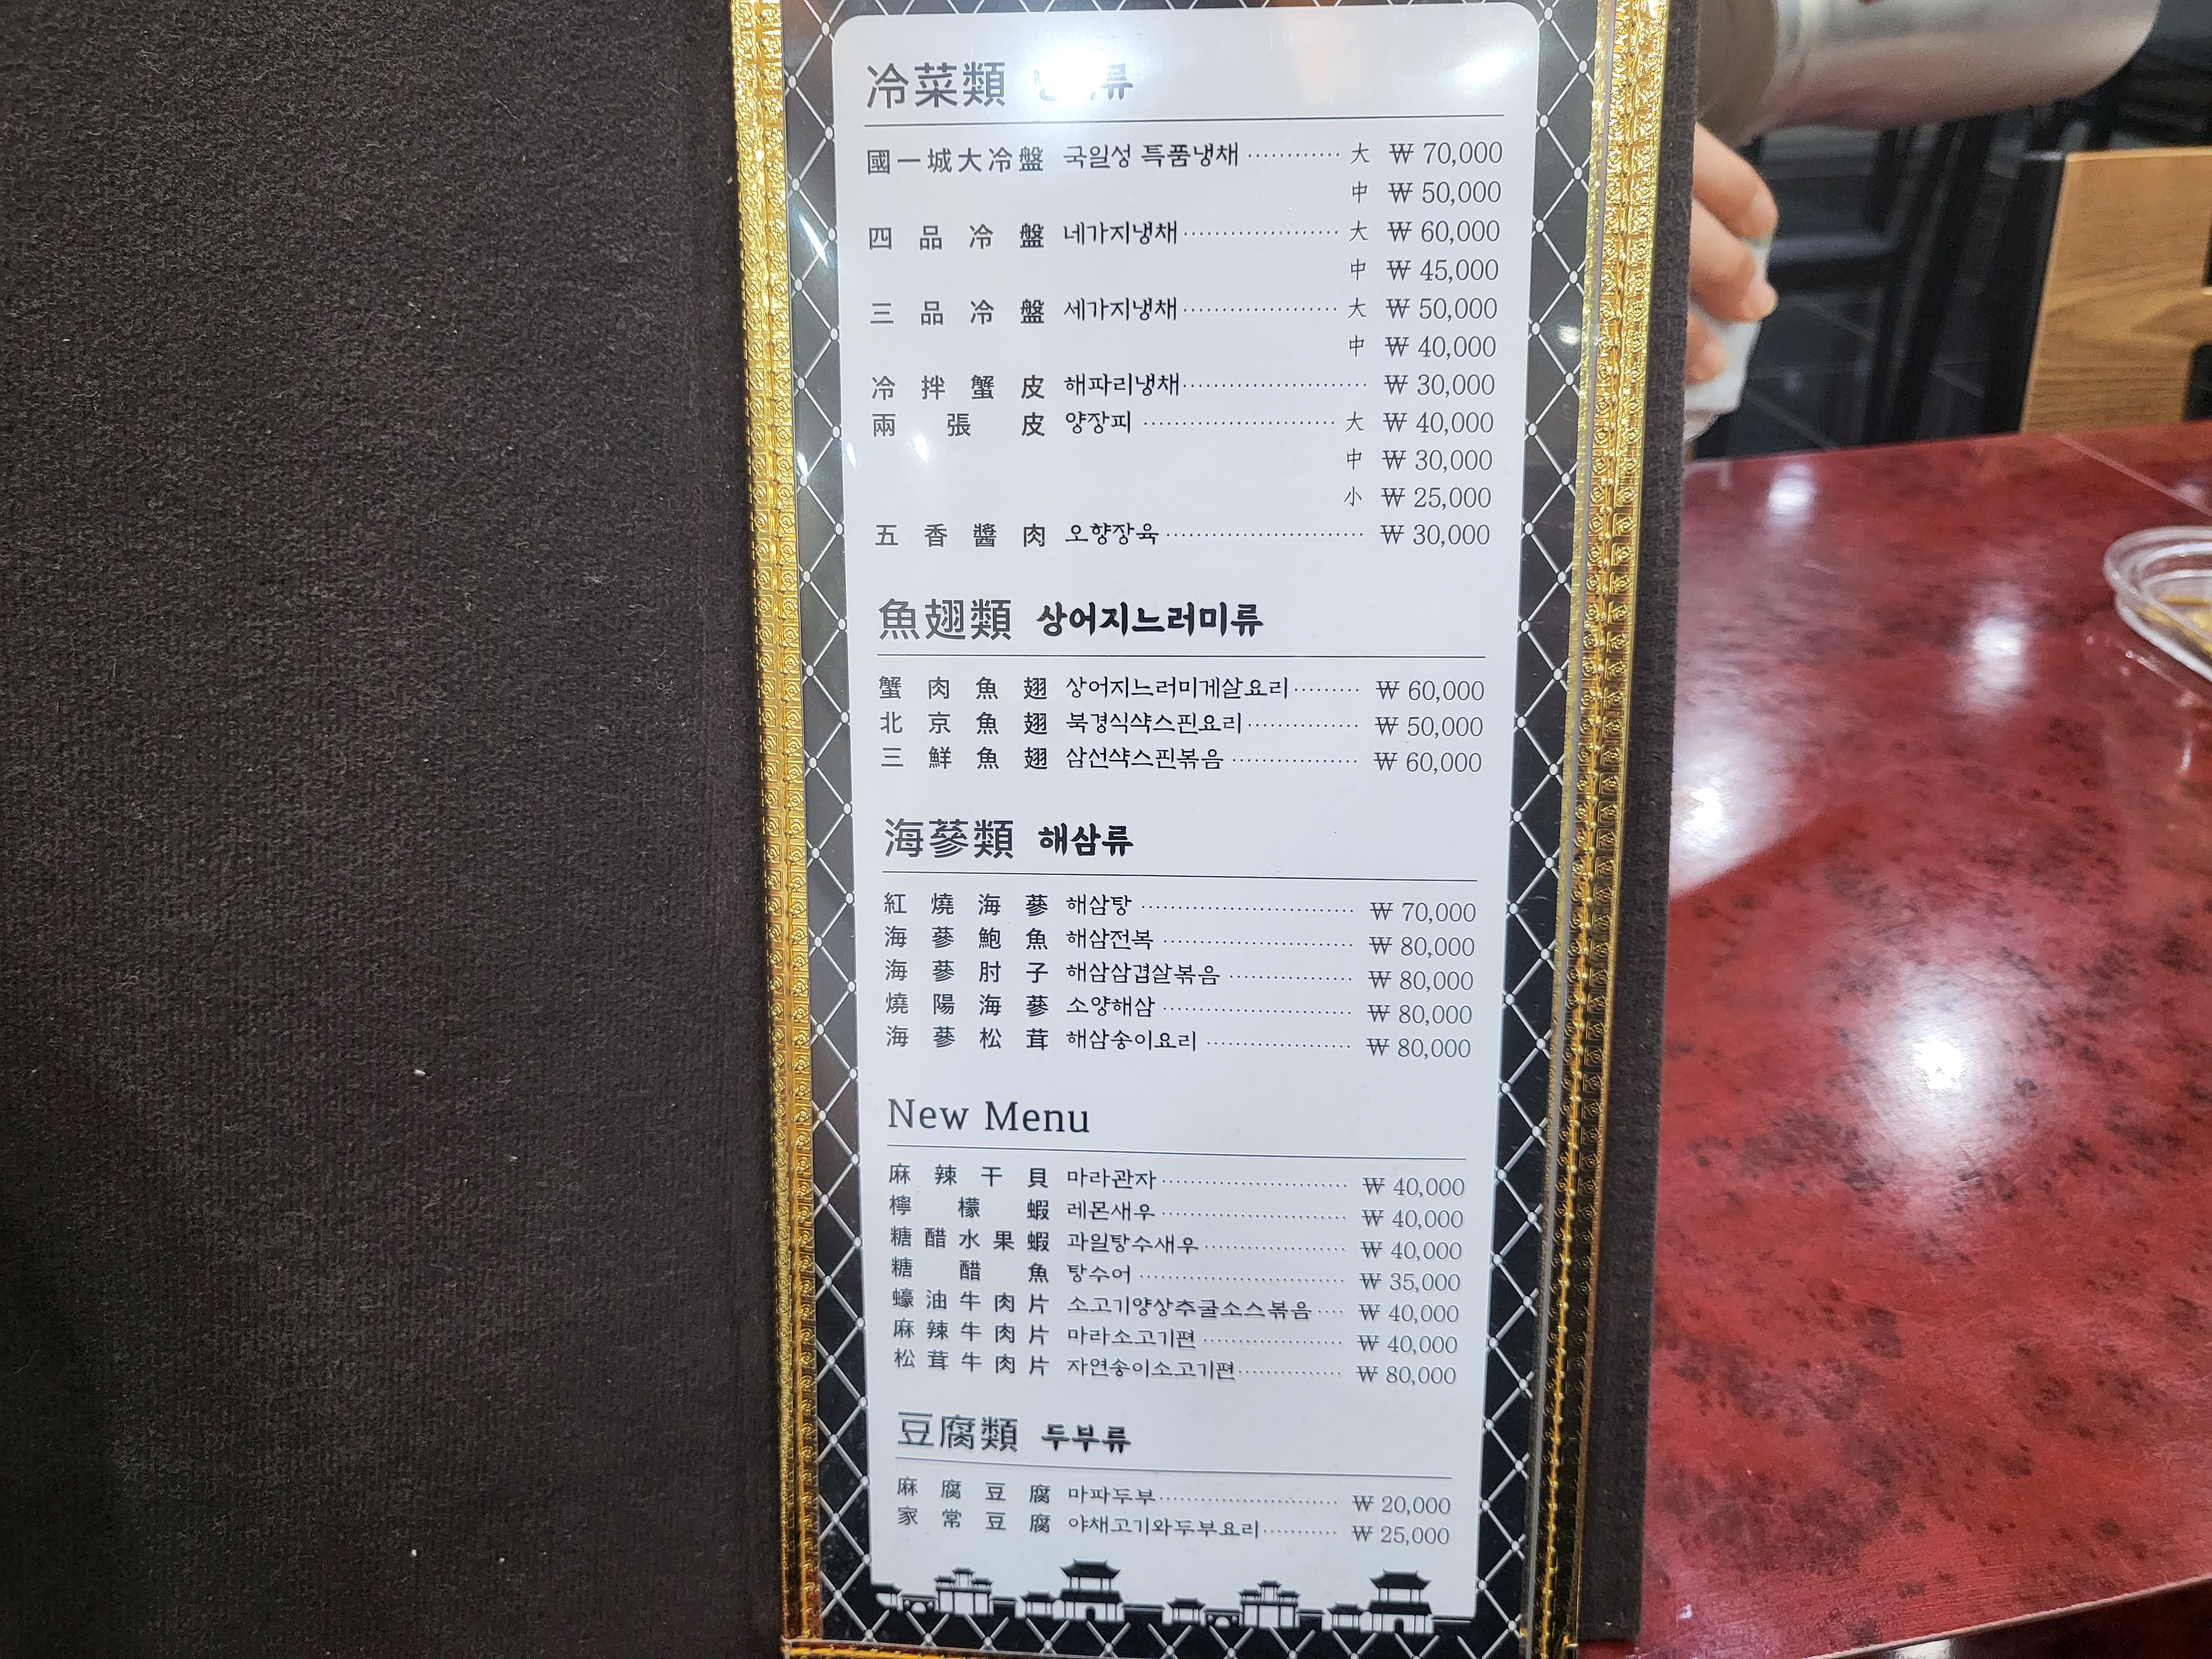 冷菜類 류
國一城大冷盤 국일성 특품냉채 ············ 大 ₩ 70,000
中 ₩ 50,000
四品冷盤 네가지냉채 ···················· 大 ₩ 60,000
中 ₩ 45,000
三品冷盤 세가지냉채 ···················· 大 ₩ 50,000
中 ₩ 40,000
冷拌蟹皮 해파리냉채 ························ ₩ 30,000
兩張皮 양장피 ························· 大 ₩ 40,000
中 ₩ 30,000
小 ₩ 25,000
五香醬肉 오향장육 ·························· ₩ 30,000
魚翅類 상어지느러미류
蟹肉魚翅 상어지느러미게살요리 ········· ₩ 60,000
北京魚翅 북경식샥스핀요리 ··············· ₩ 50,000
三鮮魚翅 삼선샥스핀볶음 ················· ₩ 60,000
海蔘類 해삼류
紅燒海蔘 해삼탕 ····························· ₩ 70,000
海蔘鮑魚 해삼전복 ·························· ₩ 80,000
海蔘肘子 해삼삼겹살볶음 ················· ₩ 80,000
燒陽海蔘 소양해삼 ·························· ₩ 80,000
海蔘松茸 해삼송이요리 ···················· ₩ 80,000
New Menu
麻辣干貝 마라관자 ·························· ₩ 40,000
檸檬蝦 레몬새우 ·························· ₩ 40,000
糖醋水果蝦 과일탕수새우 ···················· ₩ 40,000
糖醋魚 탕수어 ····························· ₩ 35,000
蠔油牛肉片 소고기양상추굴소스볶음 ···· ₩ 40,000
麻辣牛肉片 마라소고기편 ···················· ₩ 40,000
松茸牛肉片 자연송이소고기편 ··············· ₩ 80,000
豆腐類 두부류
麻腐豆腐 마파두부 ·························· ₩ 20,000
家常豆腐 야채고기와두부요리 ··········· ₩ 25,000